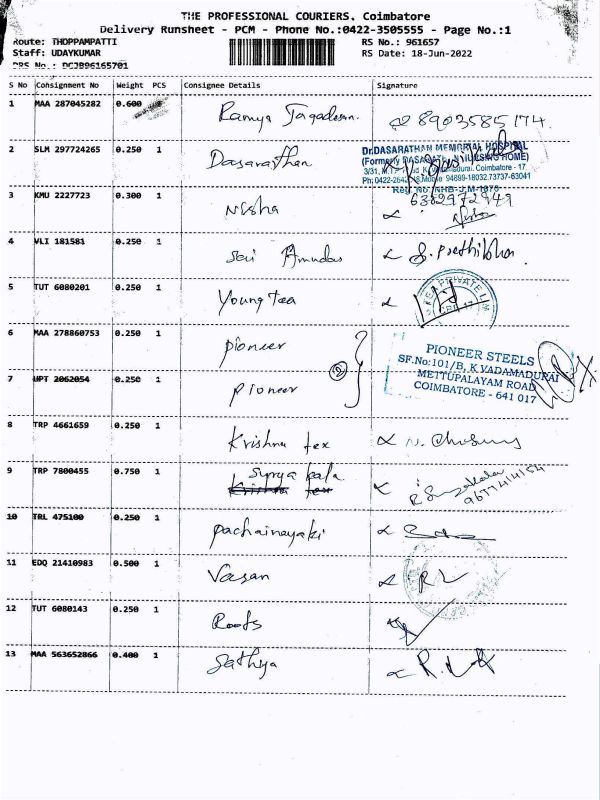 THE PROFESSIONAL COURIERS. Coimbatore
Delivery Runsheet - PCM - Phone No.:0422-3505555 - Page No.:1
Route: THOPPAMPATTI RS No.: 961657
Staff: UDAYKUMAR RS Date: 18-Jun-2022
DRS No.: DCJB96165701
S No Consignment No Weight PCS Consignee Details Signature
1 MAA 287045282 0.600 Ramya Jagadesan. 8903585174.
2 SLM 297724265 0.250 1 Dasarathan
Dr.DASARATHAN MEMORIAL HOSPITAL
(Formerly DASARATHAN NURSING HOME)
Coimbatore - 17
94899-18032.73737-63041
3 KMU 2227723 0.300 1 Nisha 6382972949
Nisha
4 VLI 181581 0.250 1 Sai Amudas
5 TUT 6080201 0.250 1 Young tea
6 MAA 278860753 0.250 1 pioneer
7 UPT 2062054 0.250 1 pioneer
2
PIONEER STEELS
SF.No:101/B, K.VADAMADURAI
METTUPALAYAM ROAD
COIMBATORE - 641 017
8 TRP 4661659 0.250 1 Krishna tex
9 TRP 7800455 0.750 1 Surya kala
Krishna tex
10 TRL 475100 0.250 1 pachainayaki
11 EDQ 21410983 0.500 1 Vasan
12 TUT 6080143 0.250 1 Roots
13 MAA 563652866 0.400 1 Sathya